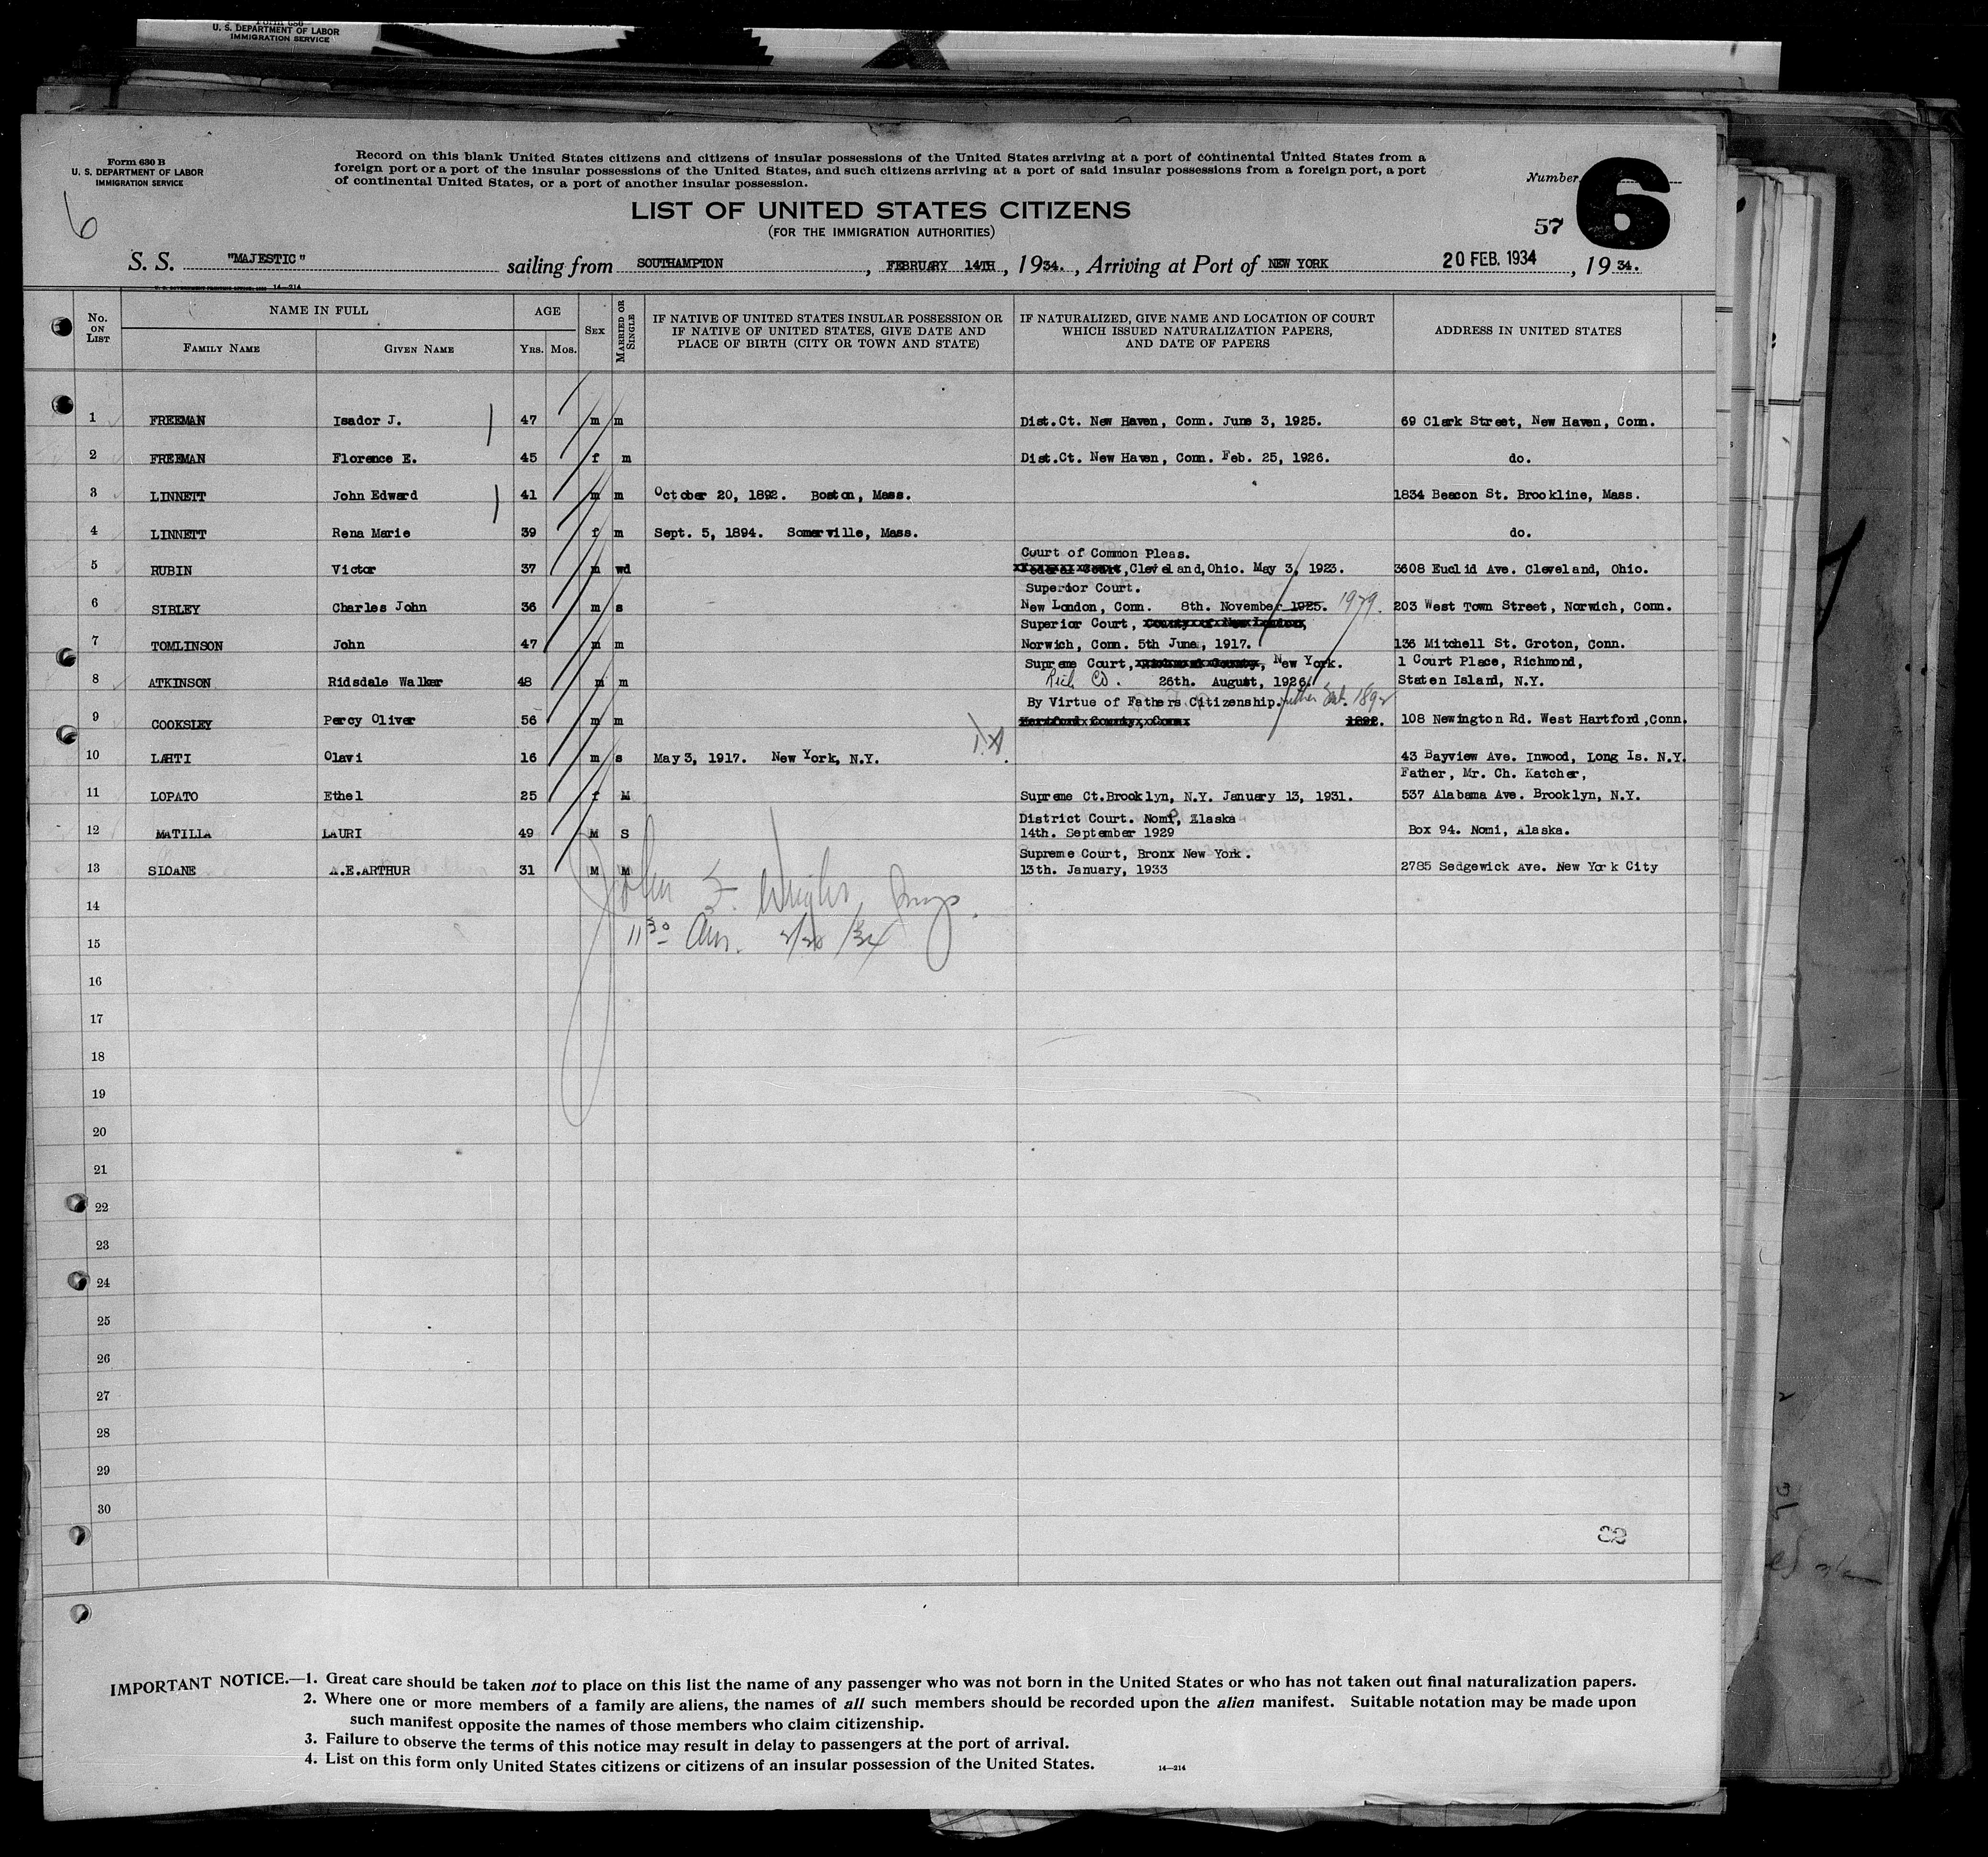 Form 630
U. S. DEPARTMENT OF LABOR
IMMIGRATION SERVICE
Form 630 B
U. S. DEPARTMENT OF LABOR
IMMIGRATION SERVICE
6
Record on this blank United States citizens and citizens of insular possessions of the United States arriving at a port of continental United States from a
foreign port or a port of the insular possessions of the United States, and such citizens arriving at a port of said insular possessions from a foreign port, a port
of continental United States, or a port of another insular possession.
Number 6
57
LIST OF UNITED STATES CITIZENS
(FOR THE IMMIGRATION AUTHORITIES)
S. S. "MAJESTIC" sailing from SOUTHAMPTON, FEBRUARY 14TH, 1934., Arriving at Port of NEW YORK 20 FEB. 1934, 1934.
14—214
No. ON LIST NAME IN FULL AGE SEX MARRIED OR SINGLE IF NATIVE OF UNITED STATES INSULAR POSSESSION OR IF NATIVE OF UNITED STATES, GIVE DATE AND PLACE OF BIRTH (CITY OR TOWN AND STATE) IF NATURALIZED, GIVE NAME AND LOCATION OF COURT WHICH ISSUED NATURALIZATION PAPERS, AND DATE OF PAPERS ADDRESS IN UNITED STATES
FAMILY NAME GIVEN NAME YRS. MOS.
1 FREEMAN Isador J. 47 m m Dist.Ct. New Haven, Conn. June 3, 1925. 69 Clark Street, New Haven, Conn.
2 FREEMAN Florence E. 45 f m Dist.Ct. New Haven, Conn. Feb. 25, 1926. do.
3 LINNETT John Edward 41 m m October 20, 1892. Boston, Mass. 1834 Beacon St. Brookline, Mass.
4 LINNETT Rena Marie 39 f m Sept. 5, 1894. Somerville, Mass. do.
Court of Common Pleas.
5 RUBIN Victor 37 m wd Federal Court, Cleveland, Ohio. May 3, 1923. 3608 Euclid Ave. Cleveland, Ohio.
Superior Court.
6 SIBLEY Charles John 36 m s New London, Conn. 8th. November 1925. 1929. 203 West Town Street, Norwich, Conn.
Superior Court, County of New London,
7 TOMLINSON John 47 m m Norwich, Conn. 5th June, 1917. 136 Mitchell St. Groton, Conn.
Supreme Court, Richmond County, New York. 1 Court Place, Richmond,
8 ATKINSON Ridsdale Walker 48 m m Rich Co. 26th. August, 1926. Staten Island, N.Y.
By Virtue of Fathers Citizenship. 1892
9 COOKSLEY Percy Oliver 56 m m Hartford County, Conn 1892. 108 Newington Rd. West Hartford, Conn.
10 LAHTI Olavi 16 m s May 3, 1917. New York, N.Y. 43 Bayview Ave. Inwood, Long Is. N.Y.
Father, Mr. Ch. Katcher,
11 LOPATO Ethel 25 f M Supreme Ct.Brooklyn, N.Y. January 13, 1931. 537 Alabama Ave. Brooklyn, N.Y.
District Court. Nomi, Alaska
12 MATILLA LAURI 49 M S 14th. September 1929 Box 94. Nomi, Alaska.
Supreme Court, Bronx New York.
13 SLOANE A.E.ARTHUR 31 M M 13th. January, 1933 2785 Sedgewick Ave. New York City
14
John F. Wright Insp.
15
11 30 Am. 2/20/34
16
17
18
19
20
21
22
23
24
25
26
27
28
29
30
32
IMPORTANT NOTICE.—1. Great care should be taken not to place on this list the name of any passenger who was not born in the United States or who has not taken out final naturalization papers.
2. Where one or more members of a family are aliens, the names of all such members should be recorded upon the alien manifest. Suitable notation may be made upon
such manifest opposite the names of those members who claim citizenship.
3. Failure to observe the terms of this notice may result in delay to passengers at the port of arrival.
4. List on this form only United States citizens or citizens of an insular possession of the United States. 14—214